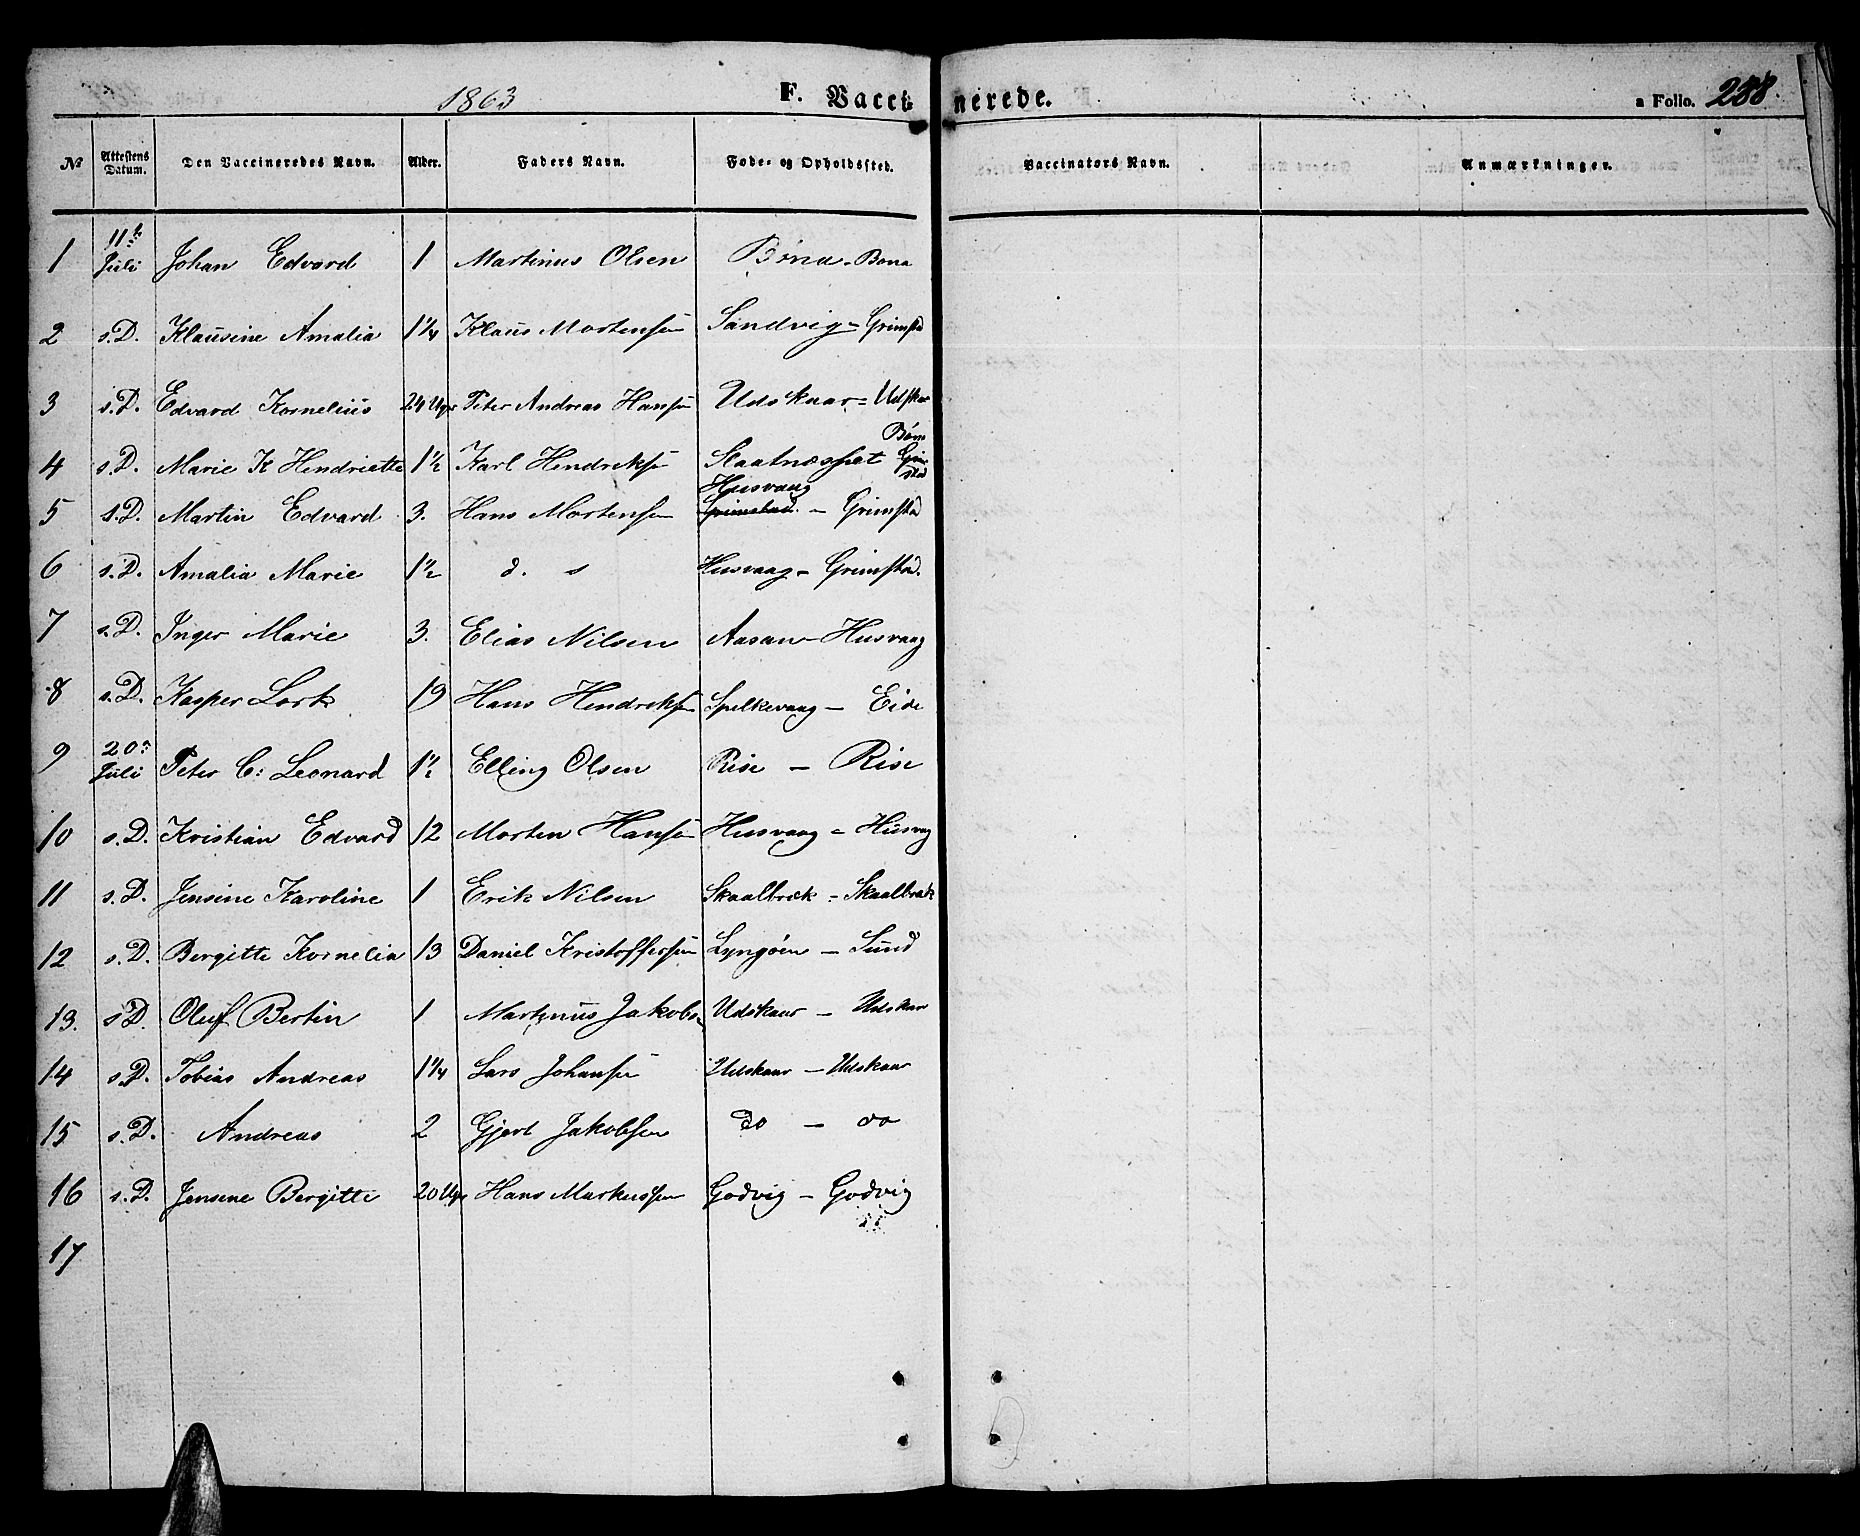 1863 F. Vaccinerede. a Folio. 288
No Attestens Datum. Den Vaccineredes Navn. Alder. Faders Navn. Føde- og Opholdssted. Vaccinators Navn. Anmærkninger.
1 11te Juli Johan Edvard 1 Martinus Olsen Bøna - Bøna
2 s.D. Klausine Amalia 1 1/4 Klaus Mortensen Sandvig - Grimstd
3 s.D. Edvard Kornelius 24 Uger Peter Andreas Hansen Udskaar - Udskar
4 s.D. Marie K Hendriette 1 1/2 Karl Hendriksen Grimstad
5 s.D. Martin Edvard 3. Hans Mortensen Husvaag Grimstad - Grimstad
6 s.D. Amalia Marie 1 1/2 d. s Husvaag - Grimstad.
7 s.D. Inger Marie 3. Elias Nilsen Aasan - Husvaag
8 s.D. Kasper Lork 19 Hans Hendriksen Spelkevaag - Eide
9 20de Juli Peter C: Leonard 1 1/2 Elling Olsen Rise - Rise
10 s.D. Kristian Edvard 12 Morten Hansen Husvaag - Husvag
11 s.D. Jensine Karoline 1 Erik Nilsen Skaalbrek - Skaalbrek
12 s.D. Bergitte Kornelia 13 Daniel Kristoffersen Lyngøen - Sund
13. s.D. Oluf Bertin 1 Martinus Jakobsen Udskaar - Udskaar
14 s.D. Tobias Andreas 1 1/4 Lars Johansen Udskaar - Udskaar
15 s.D. Andreas 2 Gjert Jakobsen do - do
16 s.D. Jensine Bergitte 20 Uger Hans Markussen Godvig - Godvig
17